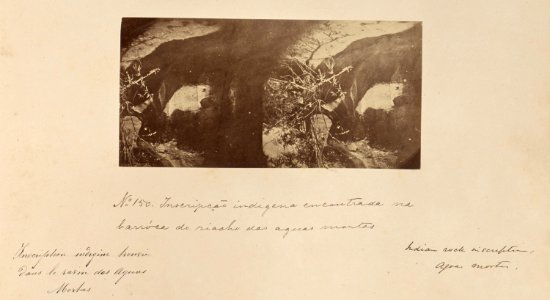 Nº 150. Inscripção indigena encontrada na
barróca do riacho das aguas mortas
Inscription indigène trouvée
Dans le ravin das Aguas
Mortas
Indian rock inscription
Agoas mortas.